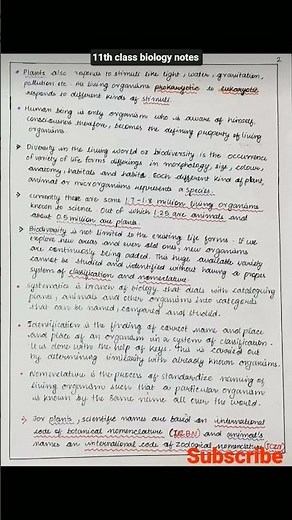 11th class biology notes
2
• Plants also responds to stimuli like light, water, gravitation,
pollution etc. All living organisms prokaryotic to eukaryotes
responds to different kinds of stimuli.
• Human being is only organism who is aware of himself,
consciousness therefore, becomes the defining property of living
organisms.
Diversity in the living world or biodiversity is the occurrence
of variety of life forms differing in morphology, size, colour,
anatomy, habitats and habits. Each different kind of plant,
animal or microorganisms represents a species.
Currently there are some 1.7-1.8 million living organisms
known to science. Out of which 1.25 are animals and
about 0.5 million are plants.
Biodiversity is not limited to the existing life forms. If we
explore new areas and even old ones, new organisms
are continuously being added. This huge available variety
cannot be studied and identified without having a proper
system of classification and nomenclature.
• Systematics is branch of biology that deals with cataloguing
plants, animals and other organisms into categories
that can be named, compared and studied.
• Identification is the finding of correct name and place
and place of an organism in a system of classification.
It is done with the help of keys. This is carried out
by determining similarity with already known organisms.
• Nomenclature is the process of standardize naming of
living organism such that a particular organism
is known by the same name all over the world.
For plants, scientific names are based on international
code of botanical nomenclature (ICBN) and animal's
names on international code of zoological nomenclature (ICZN)
Subscribe